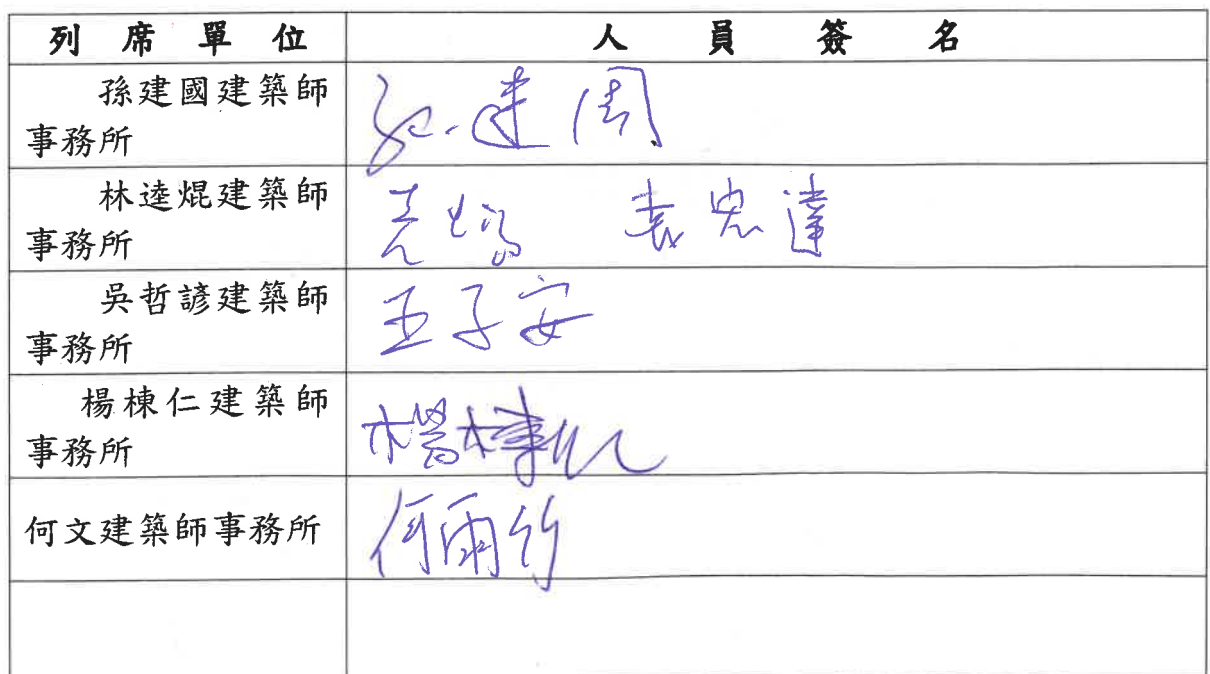 列席單位 人員簽名
孫建國建築師
事務所
孫建國
林逵焜建築師
事務所
袁忠達
吳哲諺建築師
事務所
王子安
楊棟仁建築師
事務所
楊棟仁
何文建築師事務所